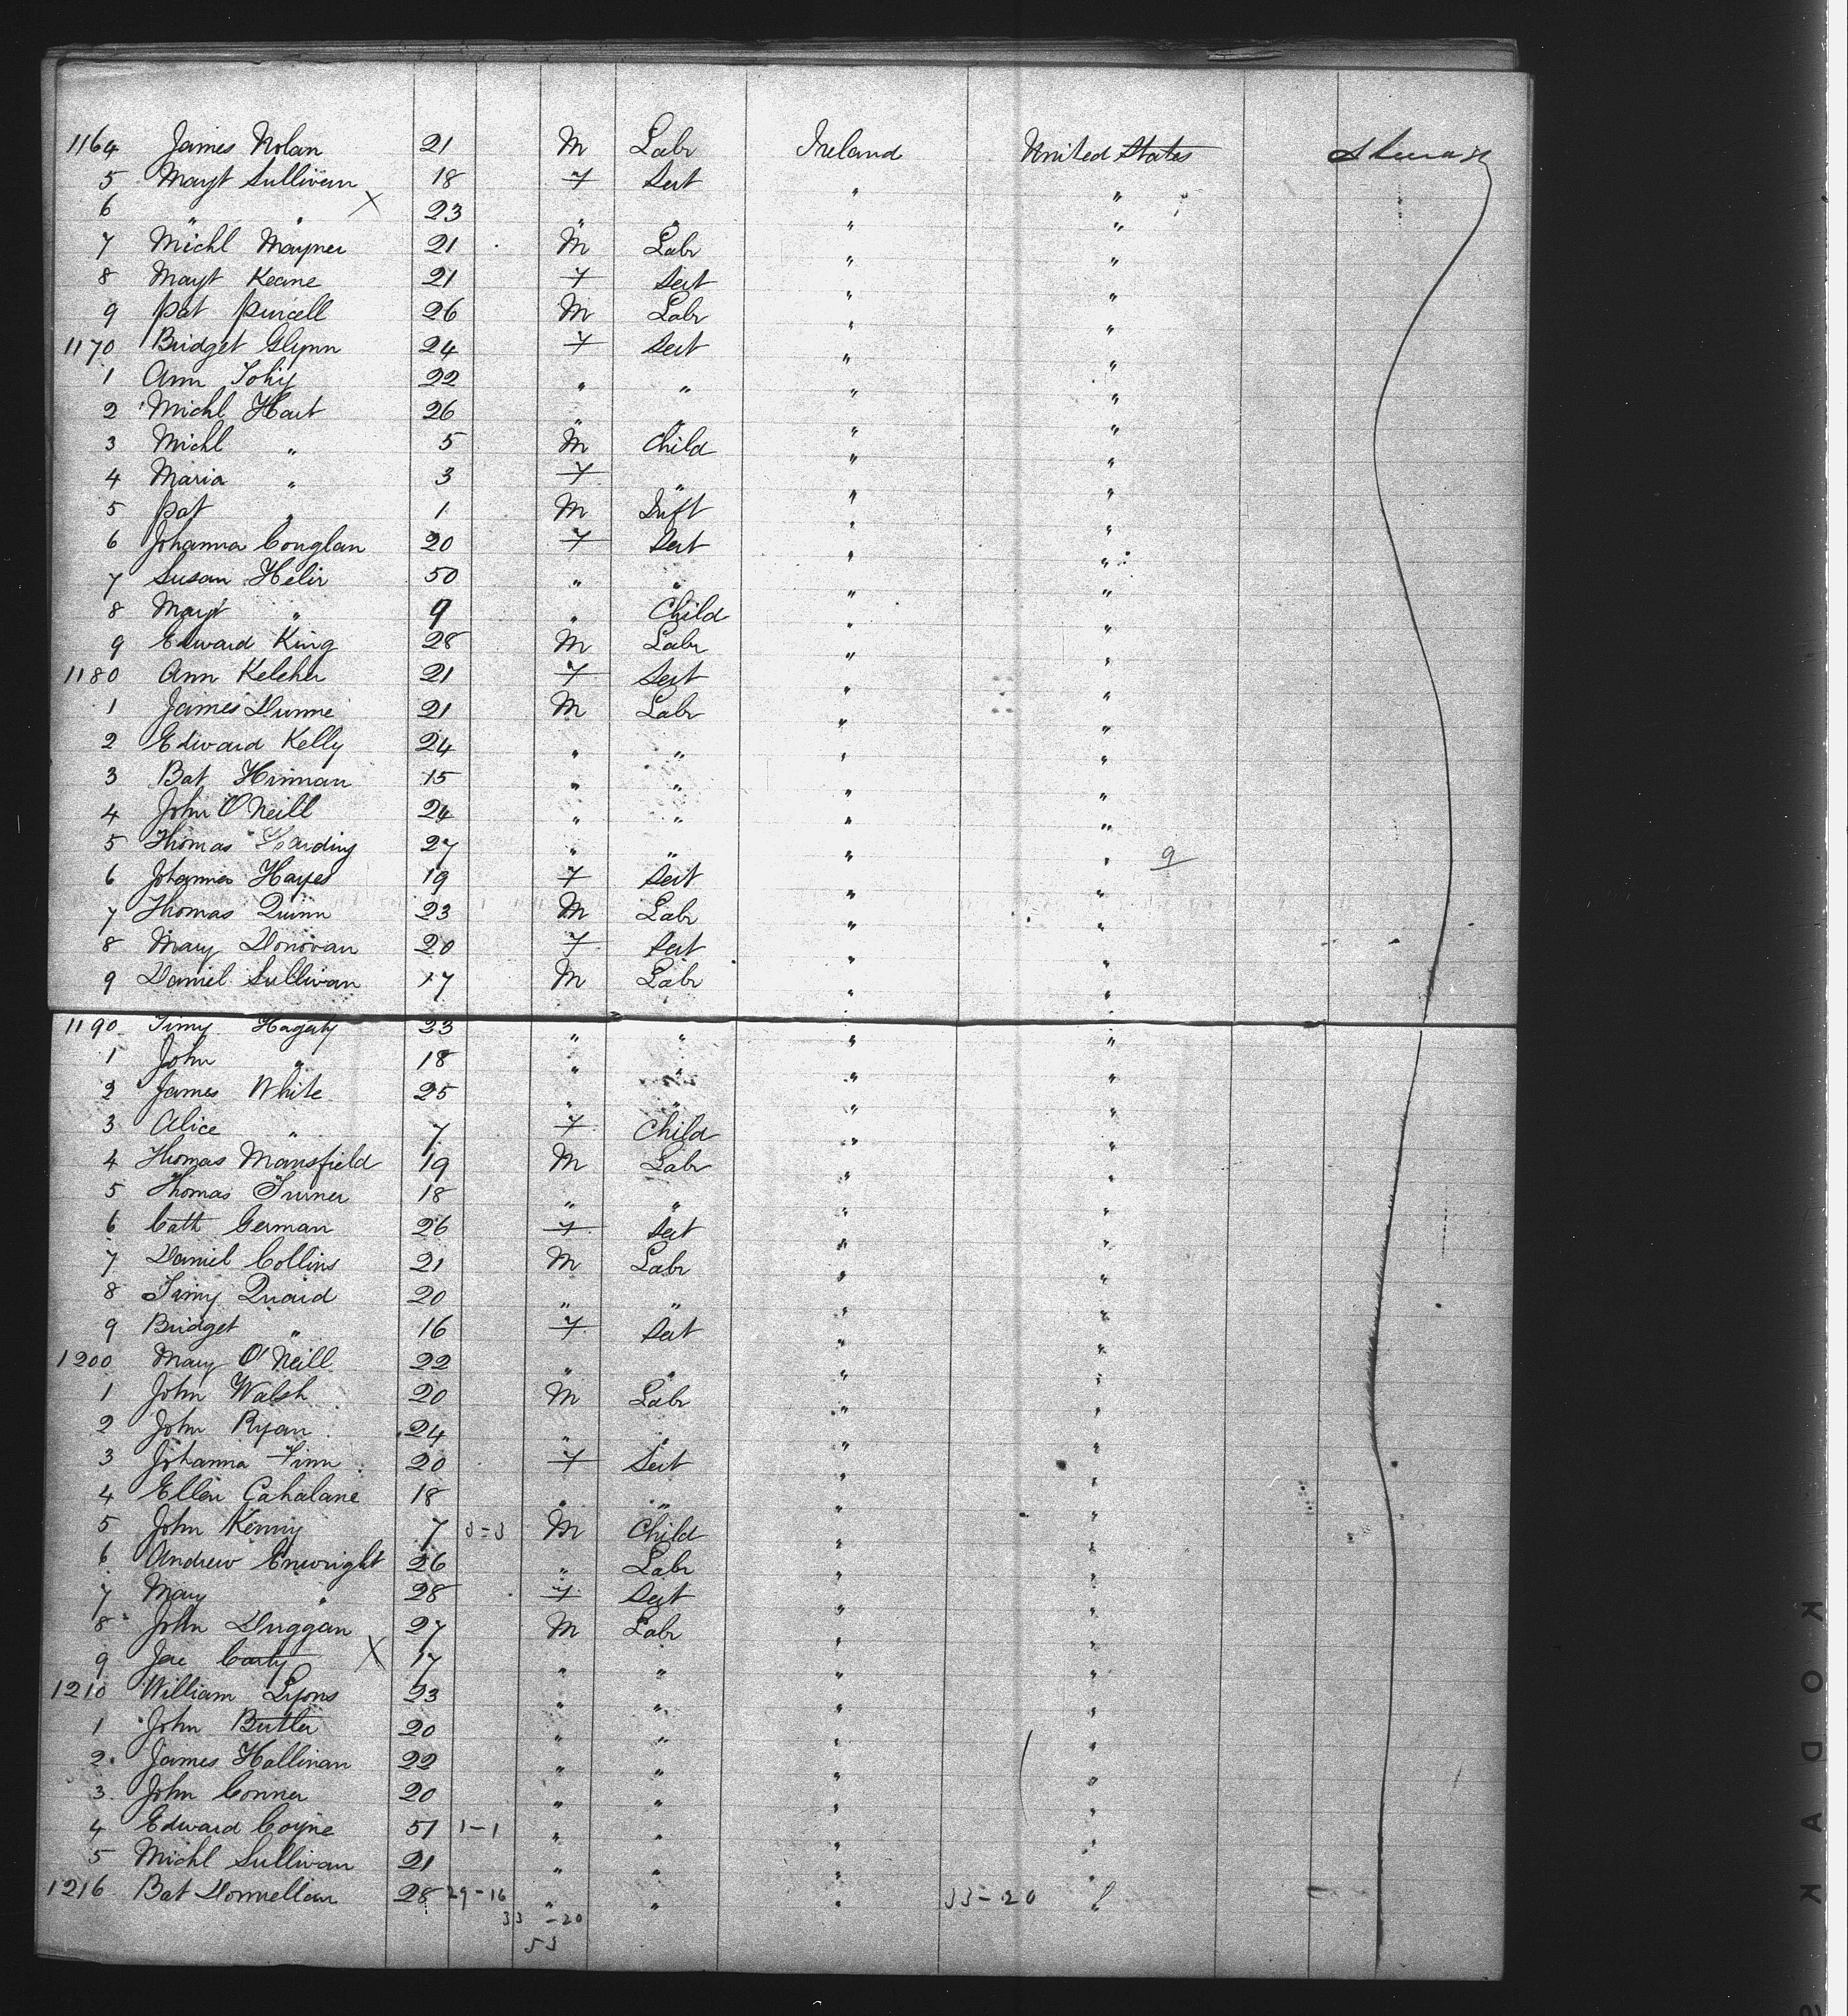 1164 James Nolan 21 M Labr Ireland United States
5 Mayt Sullivan 18 F Sert " "
6 " " X 23 " " " "
7 Michl 21 M Labr " "
8 Mayt Keane 21 F Sert " "
9 Pat Purcell 26 M Labr " "
1170 Bridget Glynn 24 F Sert " "
1 Ann 22 " " " "
2 Michl Hart 26 " " " "
3 Michl " 5 M Child " "
4 Maria " 3 F " " "
5 Pat " 1 M Inft " "
6 Johanna Conglan 20 F Sert " "
7 Susan 50 " " " "
8 Mayt " 9 " Child " "
9 Edward King 28 M Labr " "
1180 Ann Keleher 21 F Sert " "
1 James Dunne 21 M Labr " "
2 Edward Kelly 24 " " " "
3 Bat Hinnan 15 " " " "
4 John O'Neill 24 " " " "
5 Thomas 27 " " " " 9
6 Johanna Hayes 19 F Sert " "
7 Thomas Quinn 23 M Labr " "
8 Mary Donovan 20 F Sert " "
9 Daniel Sullivan 17 M Labr " "
1190 Timy Hagerty 23 " " " "
1 John " 18 " " " "
2 James White 25 " " " "
3 Alice " 7 F Child " "
4 Thomas Mansfield 19 M Labr " "
5 Thomas 18 " " " "
6 Cath German 26 F Sert " "
7 Daniel Collins 21 M Labr " "
8 Timy Quaid 20 " " " "
9 Bridget " 16 F Sert " "
1200 Mary O'Neill 22 " " " "
1 John Walsh 20 M Labr " "
2 John Ryan 24 " " " "
3 Johanna Finn 20 F Sert " "
4 Ellen Cahalane 18 " " " "
5 John Kenny 7 3-3 M Child " "
6 Andrew Enwright 26 " Labr " "
7 Mary " 28 F Sert " "
8 John Duggan 27 M Labr " "
9 Jas Carty X 17 " " " "
1210 William Lyons 23 " " " "
1 John Butler 20 " " " "
2 James Hallinan 22 " " " "
3 John Conner 20 " " " "
4 Edward Coyne 51 1-1 " " " "
5 Michl Sullivan 21 " " " "
1216 Bat Donnellan 28 29-16 " " " 33-20 "
33-20
53
KODAK